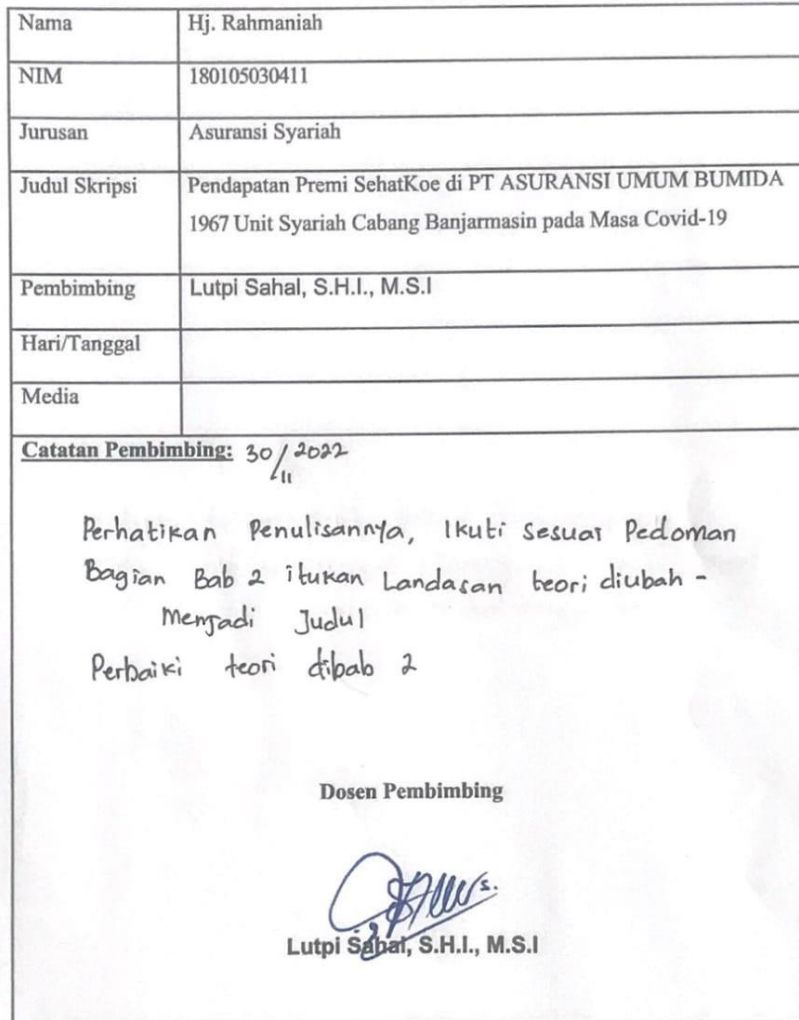 Nama Hj. Rahmaniah
NIM 180105030411
Jurusan Asuransi Syariah
Judul Skripsi Pendapatan Premi SehatKoe di PT ASURANSI UMUM BUMIDA
1967 Unit Syariah Cabang Banjarmasin pada Masa Covid-19
Pembimbing Lutpi Sahal, S.H.I., M.S.I
Hari/Tanggal
Media
Catatan Pembimbing: 30/11 2022
Perhatikan Penulisannya, Ikuti Sesuai Pedoman
Bagian Bab 2 itukan Landasan teori diubah -
Menjadi Judul
Perbaiki teori dibab 2
Dosen Pembimbing
Lutpi Sahal, S.H.I., M.S.I